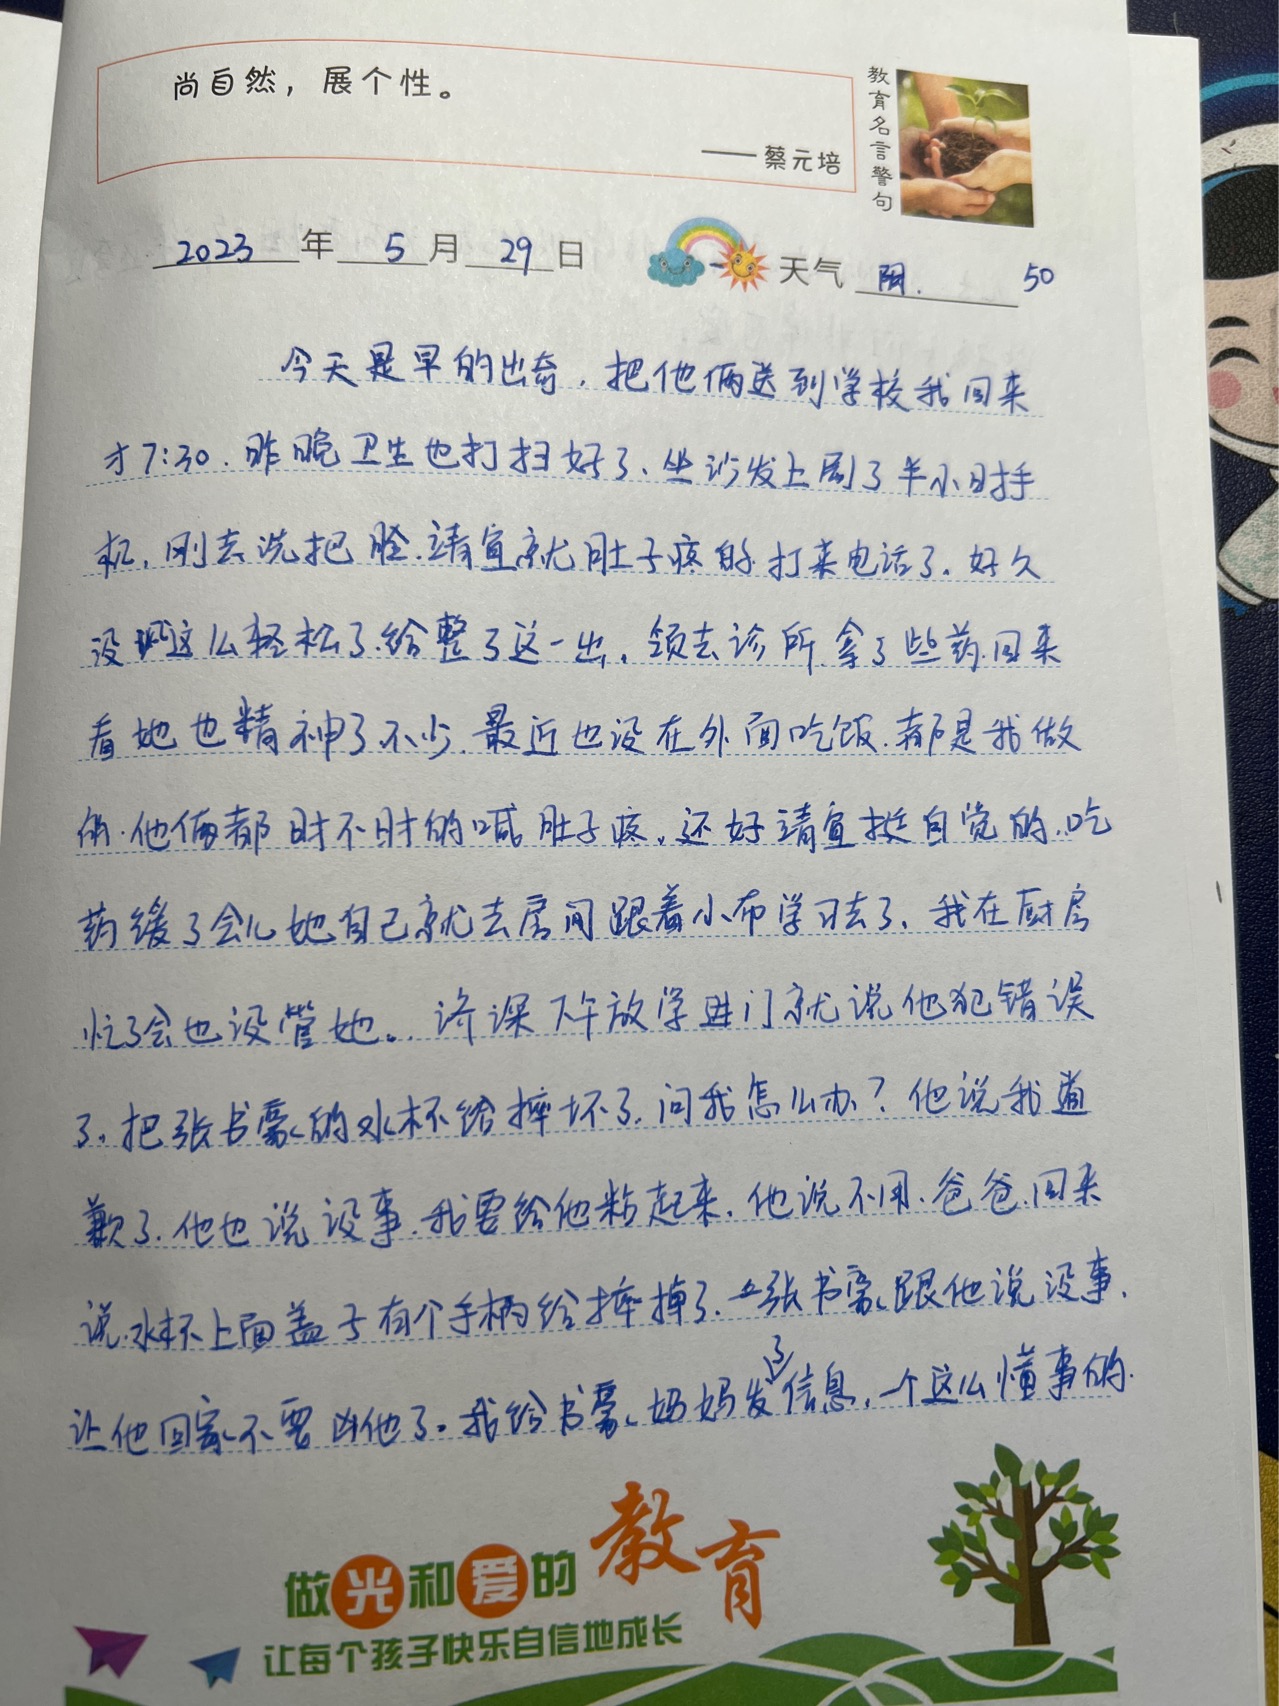 尚自然，展个性。
——蔡元培
教育名言警句
2023年5月29日 天气 阴. 50
今天是早的出奇，把他俩送到学校我回来
才7:30.昨晚卫生也打扫好了、坐沙发上刷了半小时手
机，刚去洗把脸.靖宜就肚子疼的打来电话了。好久
没这么轻松了.给整了这一出，领去诊所拿了些药.回来
看她也精神了不少.最近也没在外面吃饭.都是我做
的.他俩都时不时的喊肚子疼，还好靖宜挺自觉的.吃
药缓了会儿她自己就去房间跟着小布学习去了，我在厨房
忙了会也没管她。..济深下午放学进门就说他犯错误
了。把张书豪的水杯给摔坏了，问我怎么办？他说我道
歉了.他也说没事.我要给他粘起来，他说不用.爸爸回来
说.水杯上面盖子有个手柄给摔掉了.张书豪跟他说没事，
让他回家不要凶他了。我给书豪妈妈发了信息，一个这么懂事的.
做光和爱的教育
让每个孩子快乐自信地成长